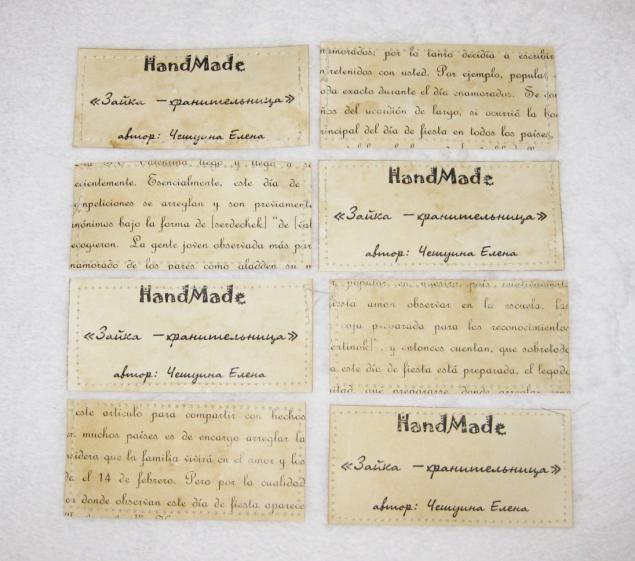 HandMade
«Зайка –хранительница»
автор: Чешуина Елена
namorados; por lo tanto decidía a escribir
retenidos con usted. Por ejemplo, popular
oda exacto durante el día enamorados. Se
del acordión de largo, si ocurrió la
incipal del día de fiesta en todos los países,
Valentina, llego, y llega a
ecientemente. Esencialmente, este día de
mpeticiones se arreglan y son previament
inónimos bajo la forma de [serdechek] "de [val
ecogieron. La gente joven observada más par
namorado de los pares como aladden su
HandMade
«Зайка –хранительница»
автор: Чешуина Елена
HandMade
«Зайка –хранительница»
автор: Чешуина Елена
popular, en nuestro país
iesta amor observar en la escuela, la
caja preparada para los reconocimientos
ertinok]", y entonces cuentan, que sobretodo
a este día de fiesta está preparada, el
que prepararse donde arreglar
este artículo para compartir con hechos
muchos países es de encargo arreglar la
videra que la familia vivirá en el amor y los
de el 14 de febrero. Pero por la cualidad
donde observan este día de fiesta aparece
HandMade
«Зайка –хранительница»
автор: Чешуина Елена